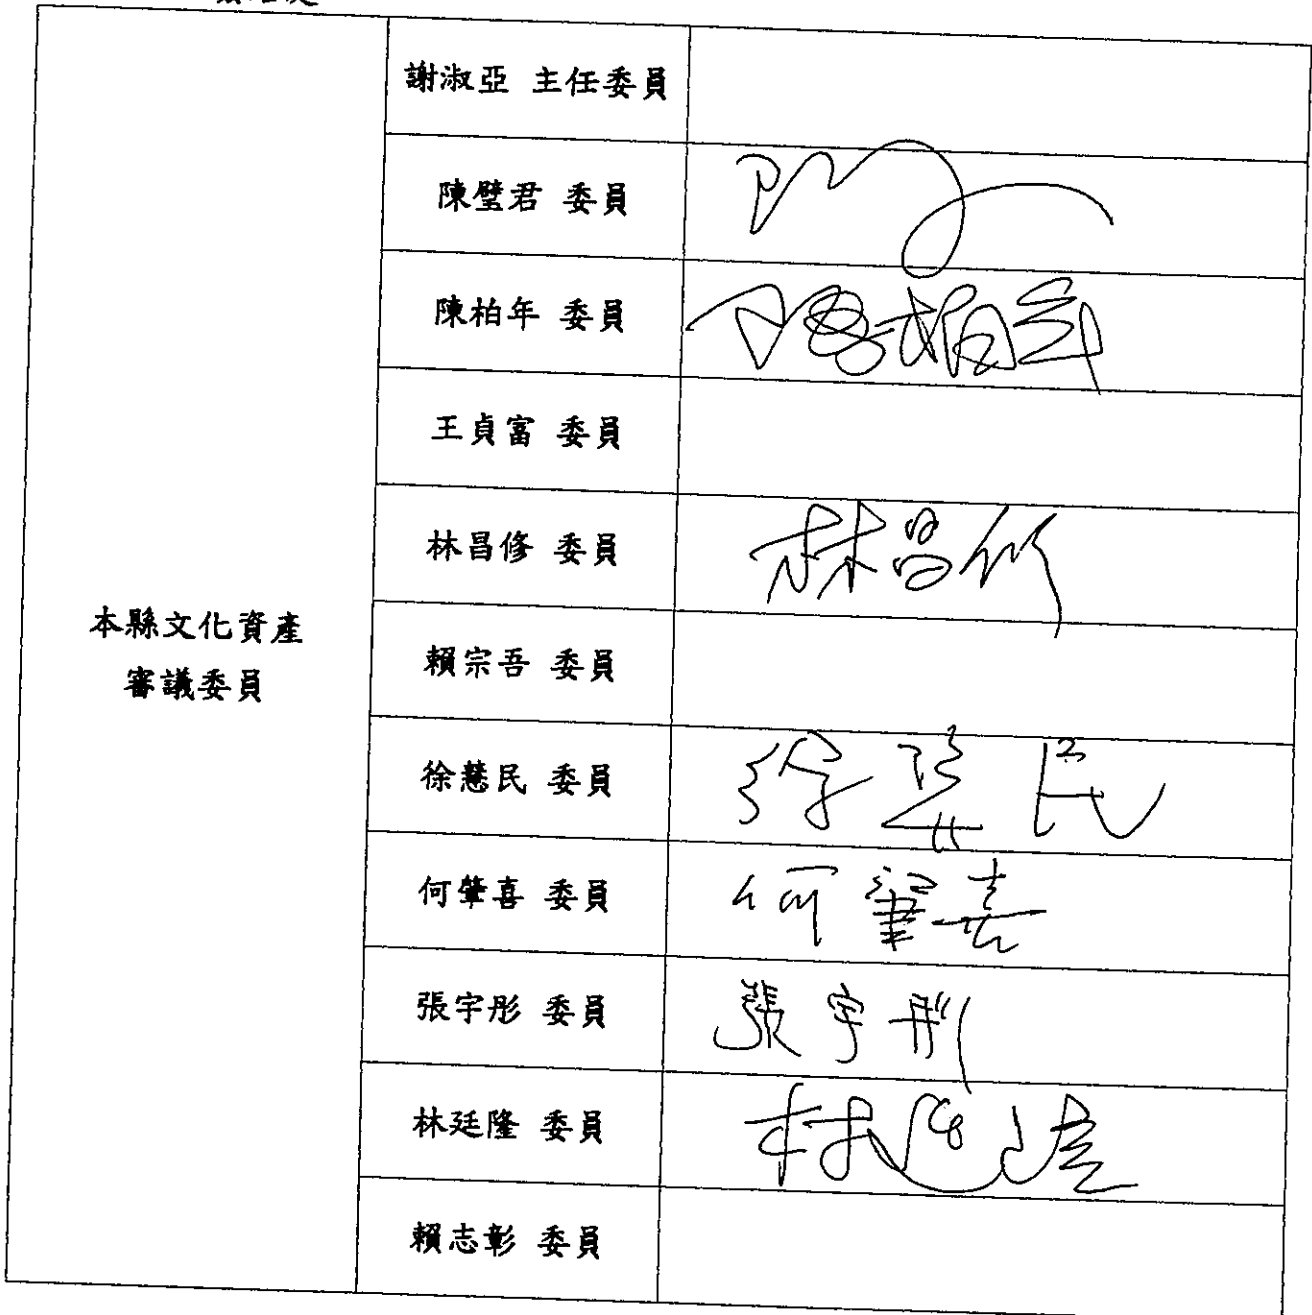 本縣文化資產
審議委員
謝淑亞 主任委員
陳璧君 委員
陳柏年 委員
陳柏年
王貞富 委員
林昌修 委員
林昌修
賴宗吾 委員
徐慧民 委員
徐慧民
何肇喜 委員
何肇喜
張宇彤 委員
張宇彤
林廷隆 委員
林廷隆
賴志彰 委員